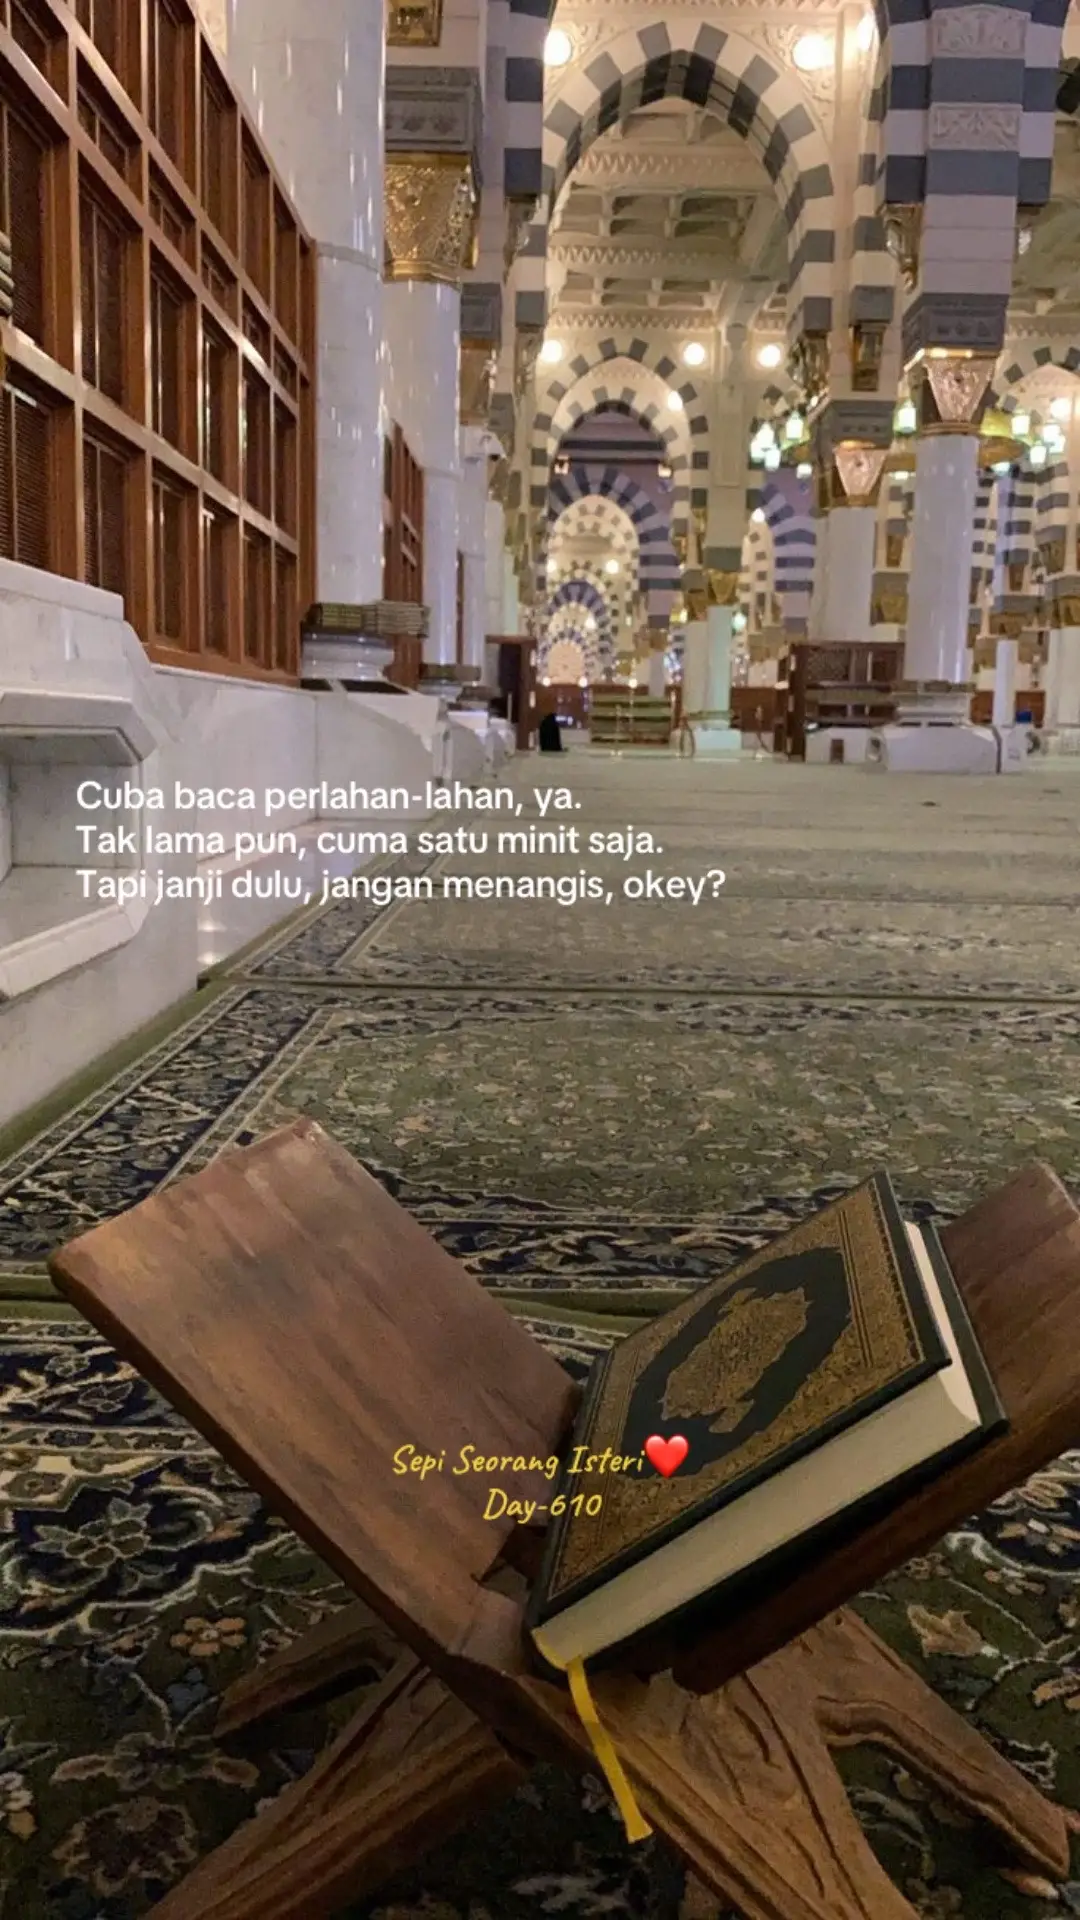 Cuba baca perlahan-lahan, ya.
Tak lama pun, cuma satu minit saja.
Tapi janji dulu, jangan menangis, okey?
Sepi Seorang Isteri❤️
Day-610